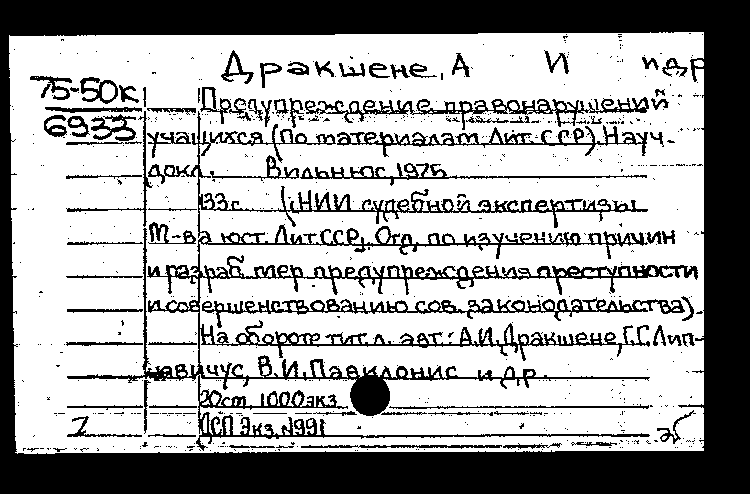 Дракшене, А И и др
75-50к
6933
Предупреждение правонарушений
учащихся (По материалам Лит. ССР). Науч.
докл. Вильнюс, 1975
133с. (НИИ судебной экспертизы
М-ва юст. Лит.ССР, Отд. по изучению причин
и разраб. мер предупреждения преступности
и совершенствованию сов. законодательства).
На обороте тит. л. авт.: А.И. Дракшене, Г.С. Лип-
навичус, В.И. Павилонис и др.
20см. 1000экз.
ДСП Экз. №991
1